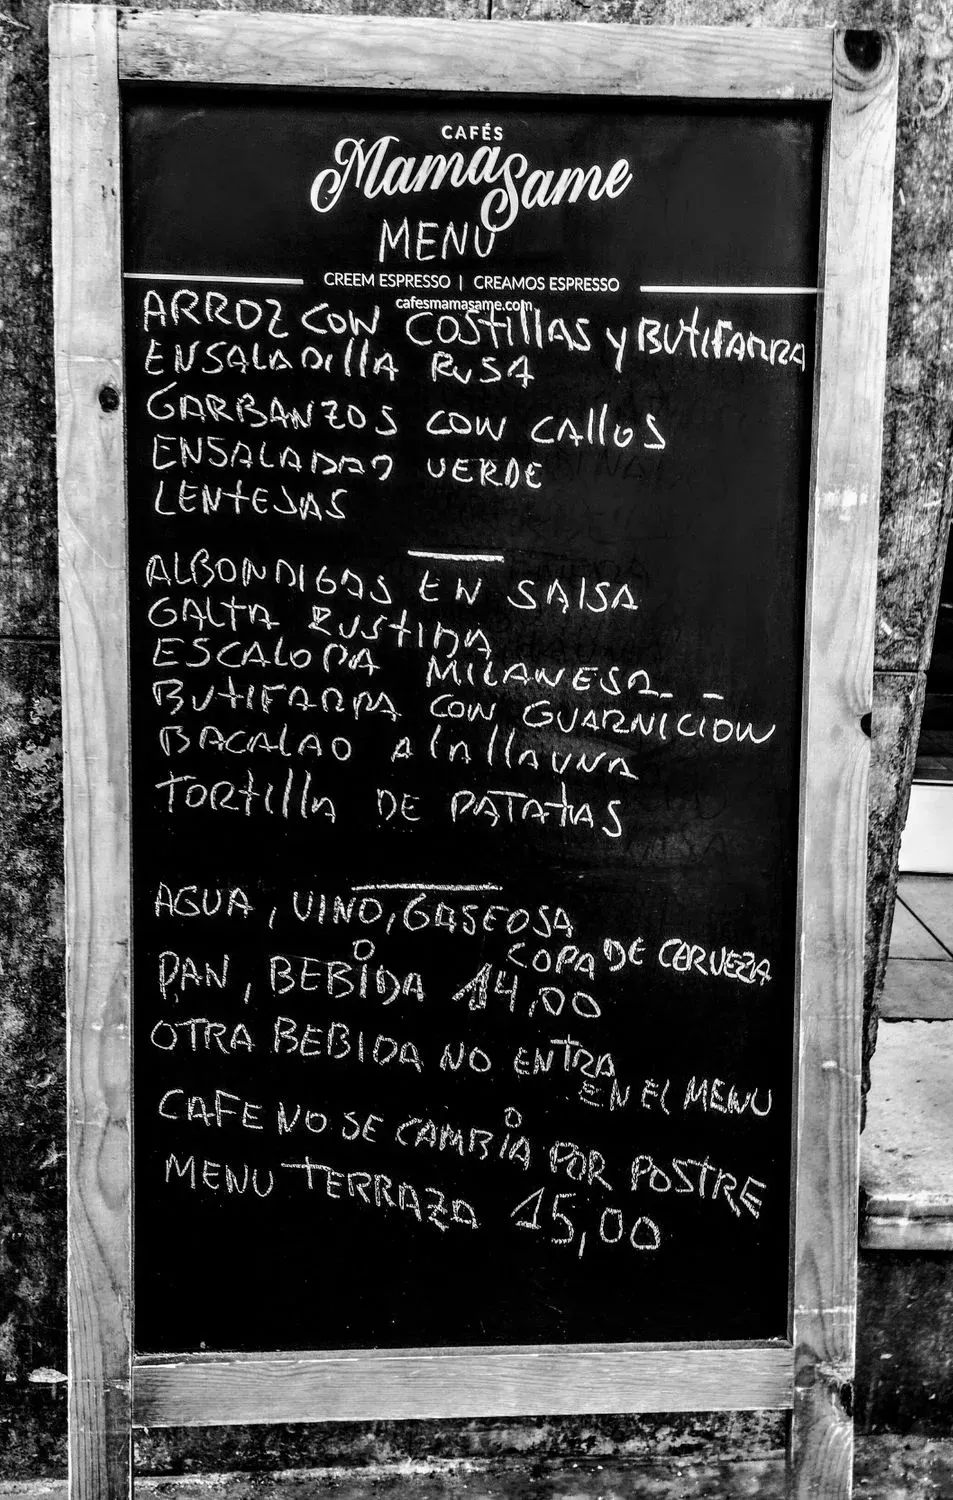 CAFÉS
Mama Same
MENU
CREEM ESPRESSO | CREAMOS ESPRESSO
cafesmamasame.com
ARROZ CON COSTILLAS Y BUTIFARRA
ENSALADILLA RUSA
GARBANZOS CON CALLOS
ENSALADA VERDE
LENTEJAS
ALBONDIGAS EN SALSA
GALTA RUSTIDA
ESCALOPA MILANESA - -
BUTIFARRA CON GUARNICION
BACALAO A la llAUNA
TORTILLA DE PATATAS
AGUA, VINO, GASEOSA
O COPA DE CERVEZA
PAN, BEBIDA 14,00
OTRA BEBIDA NO ENTRA
EN El MENU
CAFE NO SE CAMBIA POR POSTRE
MENU TERRAZA 15,00